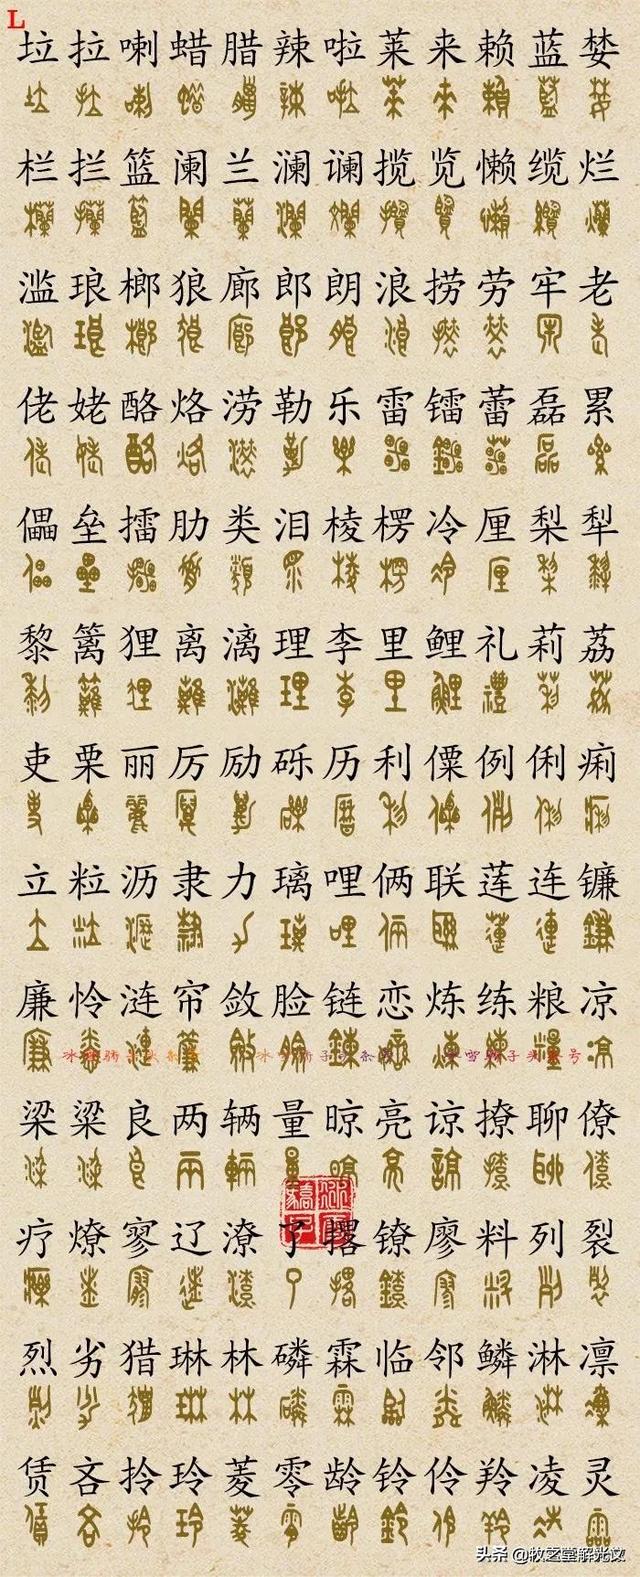 L
垃拉喇蜡腊辣啦莱来赖蓝婪
栏拦篮阑兰澜谰揽览懒缆烂
滥琅榔狼廊郎朗浪捞劳牢老
佬姥酪烙涝勒乐雷镭蕾磊累
儡垒擂肋类泪棱楞冷厘梨犁
黎篱狸离漓理李里鲤礼莉荔
吏栗丽厉励砾历利傈例俐痢
立粒沥隶力璃哩俩联莲连镰
廉怜涟帘敛脸链恋炼练粮凉
梁粱良两辆量晾亮谅撩聊僚
疗燎寥辽潦了撂镣廖料列裂
烈劣猎琳林磷霖临邻鳞淋凛
赁吝拎玲菱零龄铃伶羚凌灵
头条 @牧之堂解光汶